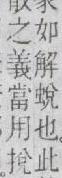 家如解蛻也此
散之義當用挩